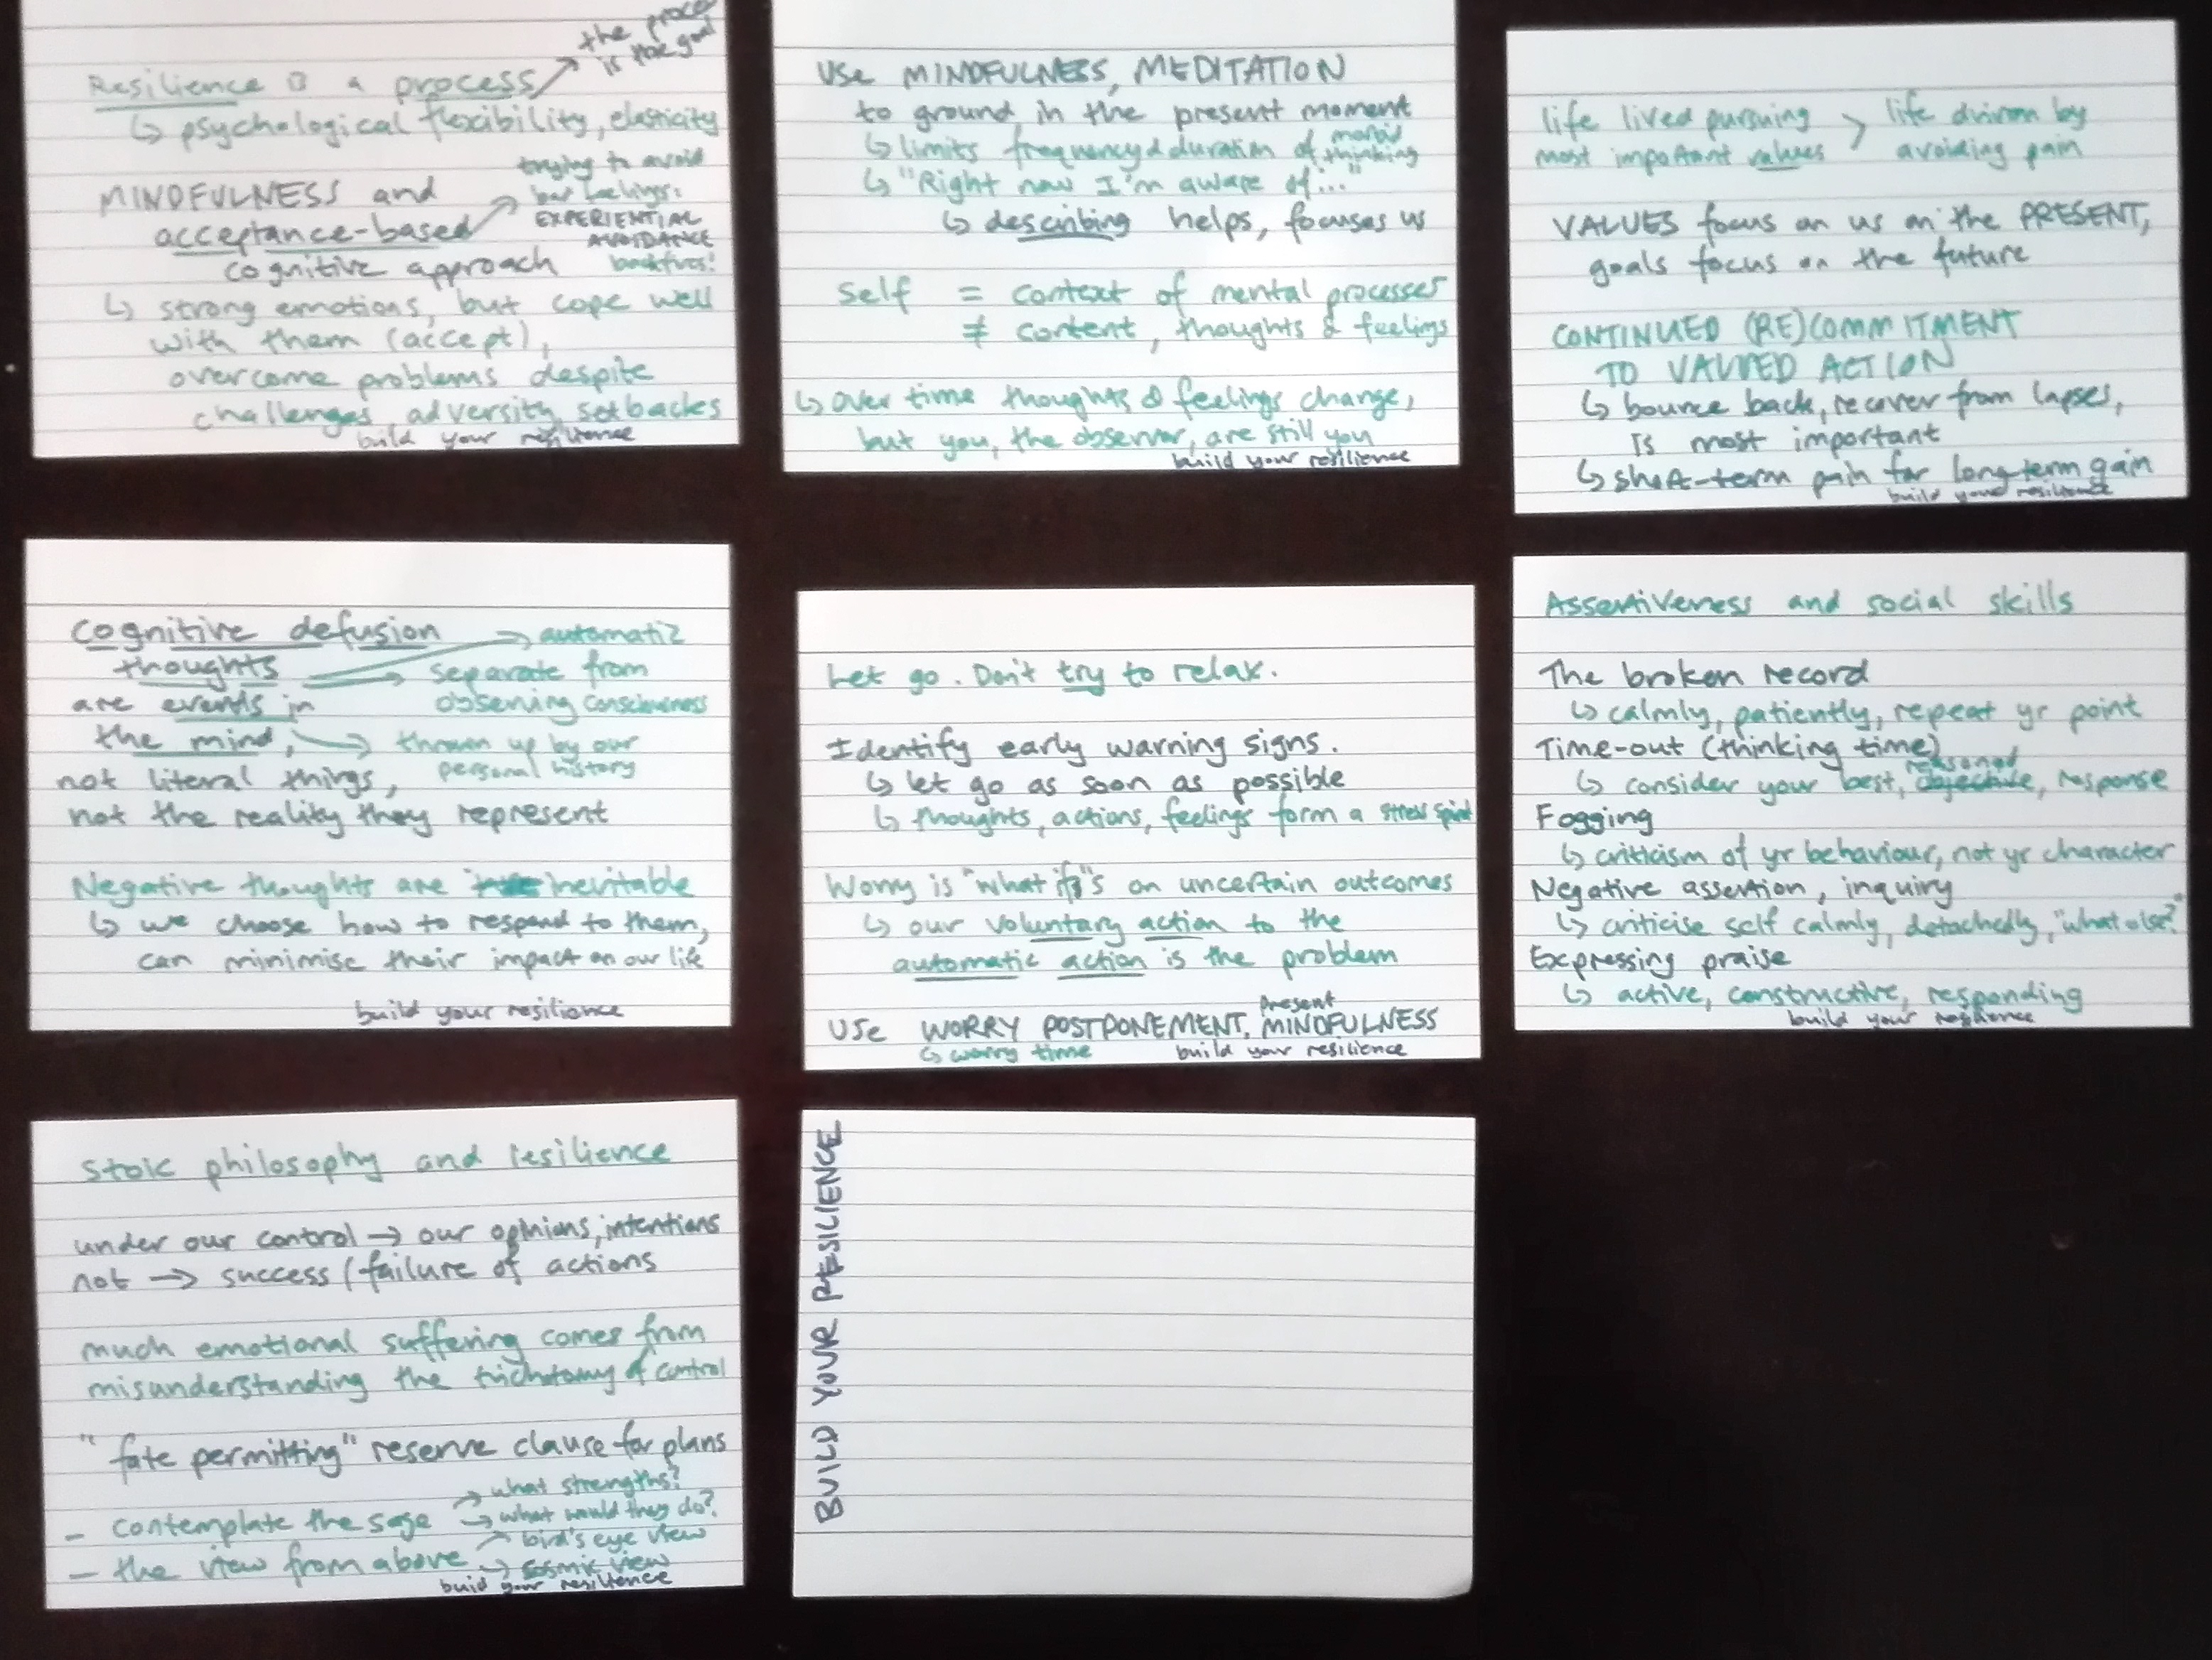 the proce
is the goal
Resilience is a process
↳ psychological flexibility, elasticity
trying to avoid
bad feelings:
EXPERIENTIAL
AVOIDANCE
backfires!
MINDFULNESS and
acceptance-based
cognitive approach
↳ strong emotions, but cope well
with them (accept),
overcome problems despite
challenges, adversity, setbacks
build your resilience
USE MINDFULNESS, MEDITATION
to ground in the present moment
↳ limits frequency & duration of morbid thinking
↳ "Right now I'm aware of..."
↳ describing helps, focuses us
self = context of mental processes
≠ content, thoughts & feelings
↳ over time thoughts & feelings change,
but you, the observer, are still you
build your resilience
life lived pursuing > life driven by
most important values avoiding pain
VALUES focus on us on the PRESENT,
goals focus on the future
CONTINUED (RE)COMMITMENT
TO VALUED ACTION
↳ bounce back, recover from lapses,
is most important
↳ short-term pain for long-term gain
build your resilience
cognitive defusion
thoughts → automatic
are events in → separate from
observing consciousness
the mind, → thrown up by our
personal history
not literal things,
not the reality they represent
Negative thoughts are inevitable
↳ we choose how to respond to them,
can minimise their impact on our life
build your resilience
Let go. Don't try to relax.
Identify early warning signs.
↳ let go as soon as possible
↳ thoughts, actions, feelings form a stress spiral
Worry is "what if"s on uncertain outcomes
↳ our voluntary action to the
automatic action is the problem
USE WORRY POSTPONEMENT, present MINDFULNESS
↳ worry time
build your resilience
Assertiveness and social skills
The broken record
↳ calmly, patiently, repeat yr point
Time-out (thinking time)
↳ consider your best, reasoned, response
Fogging
↳ criticism of yr behaviour, not yr character
Negative assertion, inquiry
↳ criticise self calmly, detachedly, "what else?"
Expressing praise
↳ active, constructive, responding
build your resilience
Stoic philosophy and resilience
under our control → our opinions, intentions
not → success/failure of actions
much emotional suffering comes from
misunderstanding the trichotomy of control
"fate permitting" reserve clause for plans
- contemplate the sage → what strengths?
→ what would they do?
- the view from above → bird's eye view
→ cosmic view
build your resilience
BUILD YOUR RESILIENCE